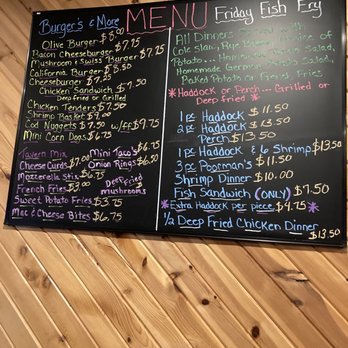 Burger's & More
MENU
Friday Fish Fry
Olive Burger $8
Bacon Cheeseburger $7.75
Mushroom & Swiss Burger $7.25
California Burger
Cheeseburger
Chicken Sandwich $7.50
Deep fried or Grilled
Chicken Tenders $7.50
Shrimp Basket $9.00
Cod Nuggets $7.50 w/ff $9.75
Mini Corn Dogs $6.75
Tavern Mix
Cheese Curds $7.00
Mozzerella Stix $6.75
French Fries $3.00
Sweet Potato Fries $3.75
Mac & Cheese Bites $6.75
Mini Taco's $6.75
Onion Rings $6.20
Deepfried
mushrooms
All Dinners
Cole Slaw, Rye Bread
Potato... Homemade Salad,
Homemade German Potato Salad,
Baked Potato or French Fries
*Haddock or Perch... Grilled or
Deep fried *
1 pc Haddock $11.50
2 pc Haddock $13.50
Perch $13.50
1 pc Haddock & 6 Shrimp $13.50
3 pc Poorman's $11.50
Shrimp Dinner $10.00
Fish Sandwich (ONLY) $7.50
*Extra Haddock per piece $4.75*
1/2 Deep Fried Chicken Dinner
$13.50